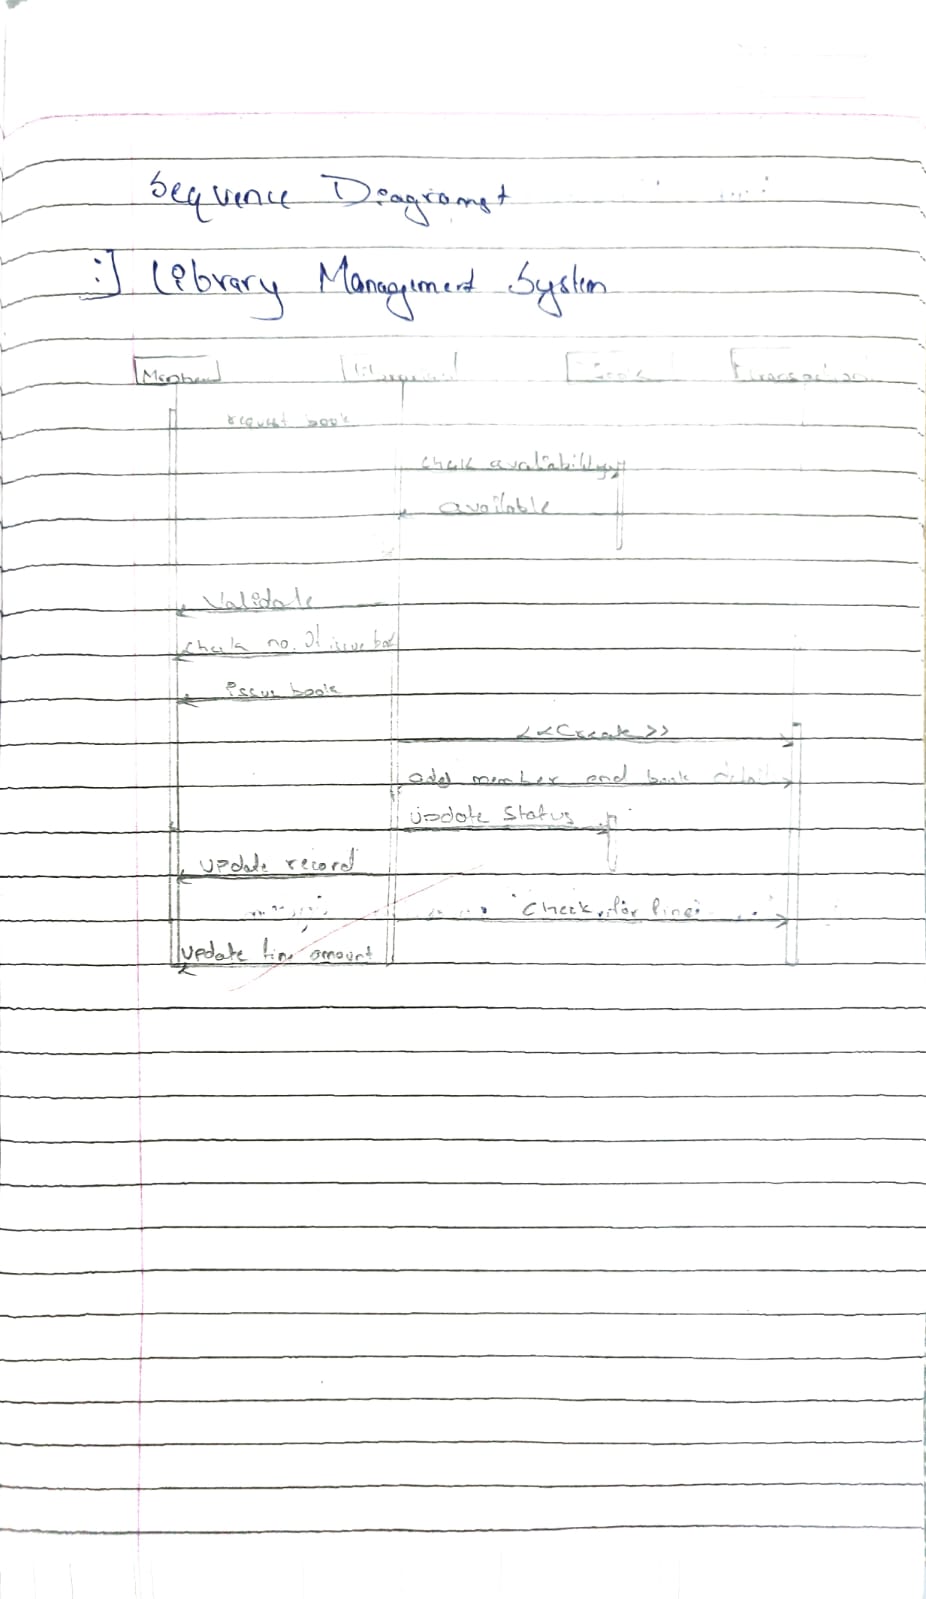 Sequence Diagrams
:] Library Management System
Member Book transaction
request book
check availability
available
Validate
check no. of issue book
issue book
<<Create>>
add member and book detail
update status
update record
Check for fine
update fine amount